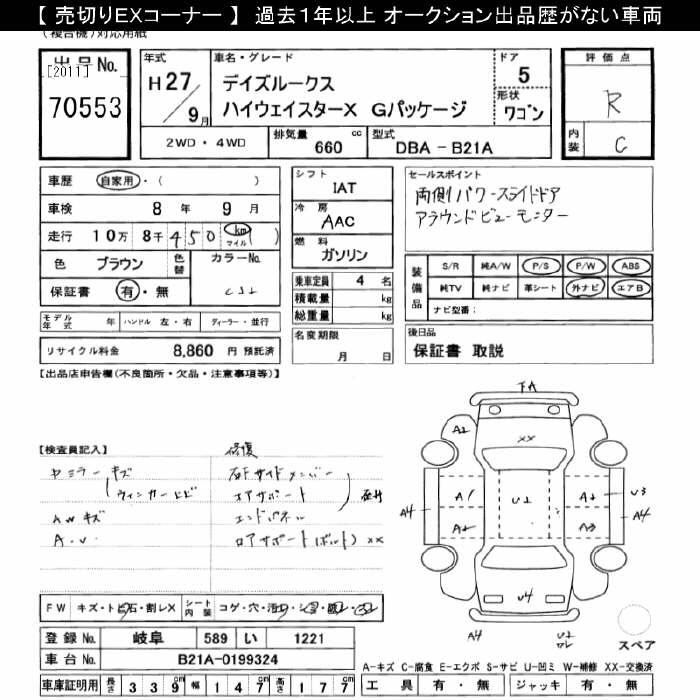 【 売切りEXコーナー 】 過去1年以上 オークション出品歴がない車両
(複合機)対応用紙
出品No.
[2011]
70553
年式
H27/9月
車名・グレード
デイズルークス
ハイウェイスターX Gパッケージ
ドア
5
形状
ワゴン
2WD・4WD
排気量
660 cc
型式
DBA-B21A
評価点
R
内装
C
車歴 自家用・( )
車検 8年 9月
走行 10万 8千 450 km マイル( )
色 ブラウン 色替 カラーNo.
保証書 有・無
シフト
IAT
冷房
AAC
燃料
ガソリン
乗車定員 4 名
積載量 kg
総重量 kg
セールスポイント
両側パワースライドドア
アラウンドビューモニター
装備品
S/R 純A/W P/S P/W ABS
純TV 純ナビ 革シート 外ナビ エアB
ナビ型番:
モデル年式 年 ハンドル 左・右 ディーラー・並行
リサイクル料金 8,860 円 預託済
名変期限
月 日
後日品
保証書 取説
【出品店申告欄(不良箇所・欠品・注意事項等)】
【検査員記入】
修復
ミラーキズ
ウィンカーヒビ
AWキズ
A・U
右Fサイドメンバー
コアサポート
エンドパネル
ロアサポート(ボルト) XX
FA
A2
XX
A1
U2
A2
U3
A4
A2
A3
A4
U4
A4
U2
スペア
FW キズ・トビ石・割レX シート内装 コゲ・穴・汚
登録No. 岐阜 589 い 1221
車台No. B21A-0199324
車庫証明用 長さ 339cm 幅 147cm 高さ 177cm
A-キズ C-腐食 E-エクボ S-サビ U-凹ミ W-補修 XX-交換済
工具 有・無 ジャッキ 有・無